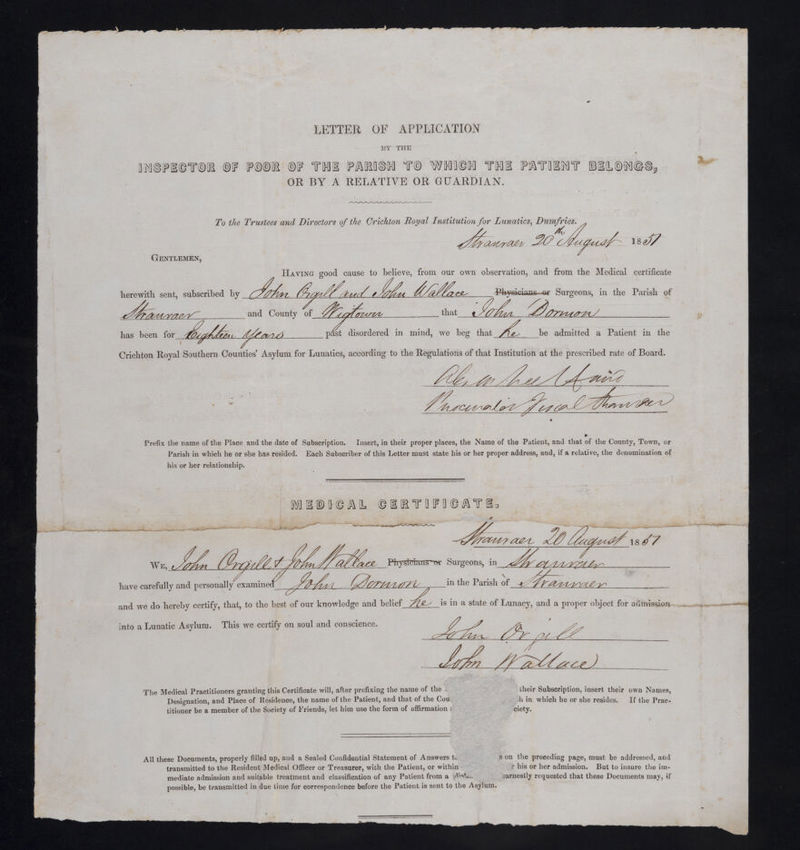 LETTER OF APPLICATION
BY THE
INSPECTOR OF POOR OF THE PARISH TO WHICH THE PATIENT BELONGS,
OR BY A RELATIVE OR GUARDIAN.
To the Trustees and Directors of the Crichton Royal Institution for Lunatics, Dumfries.
Stranraer 20th August 1851
GENTLEMEN,
HAVING good cause to believe, from our own observation, and from the Medical certificate
herewith sent, subscribed by John Orgill and John Wallace Physicians or Surgeons, in the Parish of
Stranraer and County of Wigtown that John Dornion
has been for Eighteen Years past disordered in mind, we beg that he be admitted a Patient in the
Crichton Royal Southern Counties' Asylum for Lunatics, according to the Regulations of that Institution at the prescribed rate of Board.
Procurator Fiscal Stranraer
Prefix the name of the Place and the date of Subscription. Insert, in their proper places, the Name of the Patient, and that of the County, Town, or
Parish in which he or she has resided. Each Subscriber of this Letter must state his or her proper address, and, if a relative, the denomination of
his or her relationship.
MEDICAL CERTIFICATE.
Stranraer 20 August 1851
WE, John Orgill & John Wallace Physicians or Surgeons, in Stranraer
have carefully and personally examined John Dornion in the Parish of Stranraer
and we do hereby certify, that, to the best of our knowledge and belief he is in a state of Lunacy, and a proper object for admission
into a Lunatic Asylum. This we certify on soul and conscience.
John Orgill
John Wallace
The Medical Practitioners granting this Certificate will, after prefixing the name of the their Subscription, insert their own Names,
Designation, and Place of Residence, the name of the Patient, and that of the Cou h in which he or she resides. If the Prac-
titioner be a member of the Society of Friends, let him use the form of affirmation ciety.
All these Documents, properly filled up, and a Sealed Confidential Statement of Answers t s on the preceding page, must be addressed, and
transmitted to the Resident Medical Officer or Treasurer, with the Patient, or within r his or her admission. But to insure the im-
mediate admission and suitable treatment and classification of any Patient from a earnestly requested that these Documents may, if
possible, be transmitted in due time for correspondence before the Patient is sent to the Asylum.